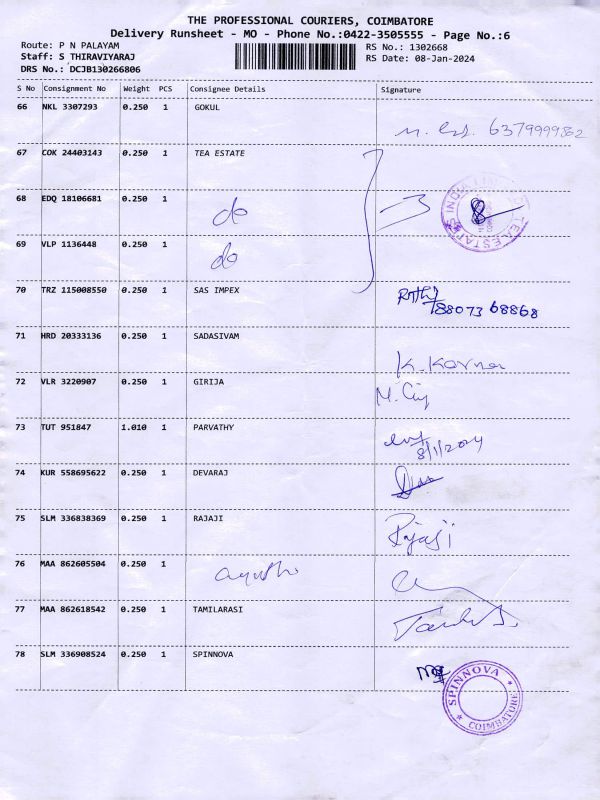 THE PROFESSIONAL COURIERS, COIMBATORE
Delivery Runsheet - MO - Phone No.:0422-3505555 - Page No.:6
Route: P N PALAYAM RS No.: 1302668
Staff: S THIRAVIYARAJ RS Date: 08-Jan-2024
DRS No.: DCJB130266806
S No Consignment No Weight PCS Consignee Details Signature
66 NKL 3307293 0.250 1 GOKUL
6379999862
67 COK 24403143 0.250 1 TEA ESTATE
68 EDQ 18106681 0.250 1
do
TEA ESTATES INDIA
69 VLP 1136448 0.250 1
do
70 TRZ 115008550 0.250 1 SAS IMPEX
88073 68868
71 HRD 20333136 0.250 1 SADASIVAM
K. 
72 VLR 3220907 0.250 1 GIRIJA
73 TUT 951847 1.010 1 PARVATHY
8/1/2024
74 KUR 558695622 0.250 1 DEVARAJ
75 SLM 336838369 0.250 1 RAJAJI
Rajaji
76 MAA 862605504 0.250 1
77 MAA 862618542 0.250 1 TAMILARASI
78 SLM 336908524 0.250 1 SPINNOVA
SPINNOVA
COIMBATORE